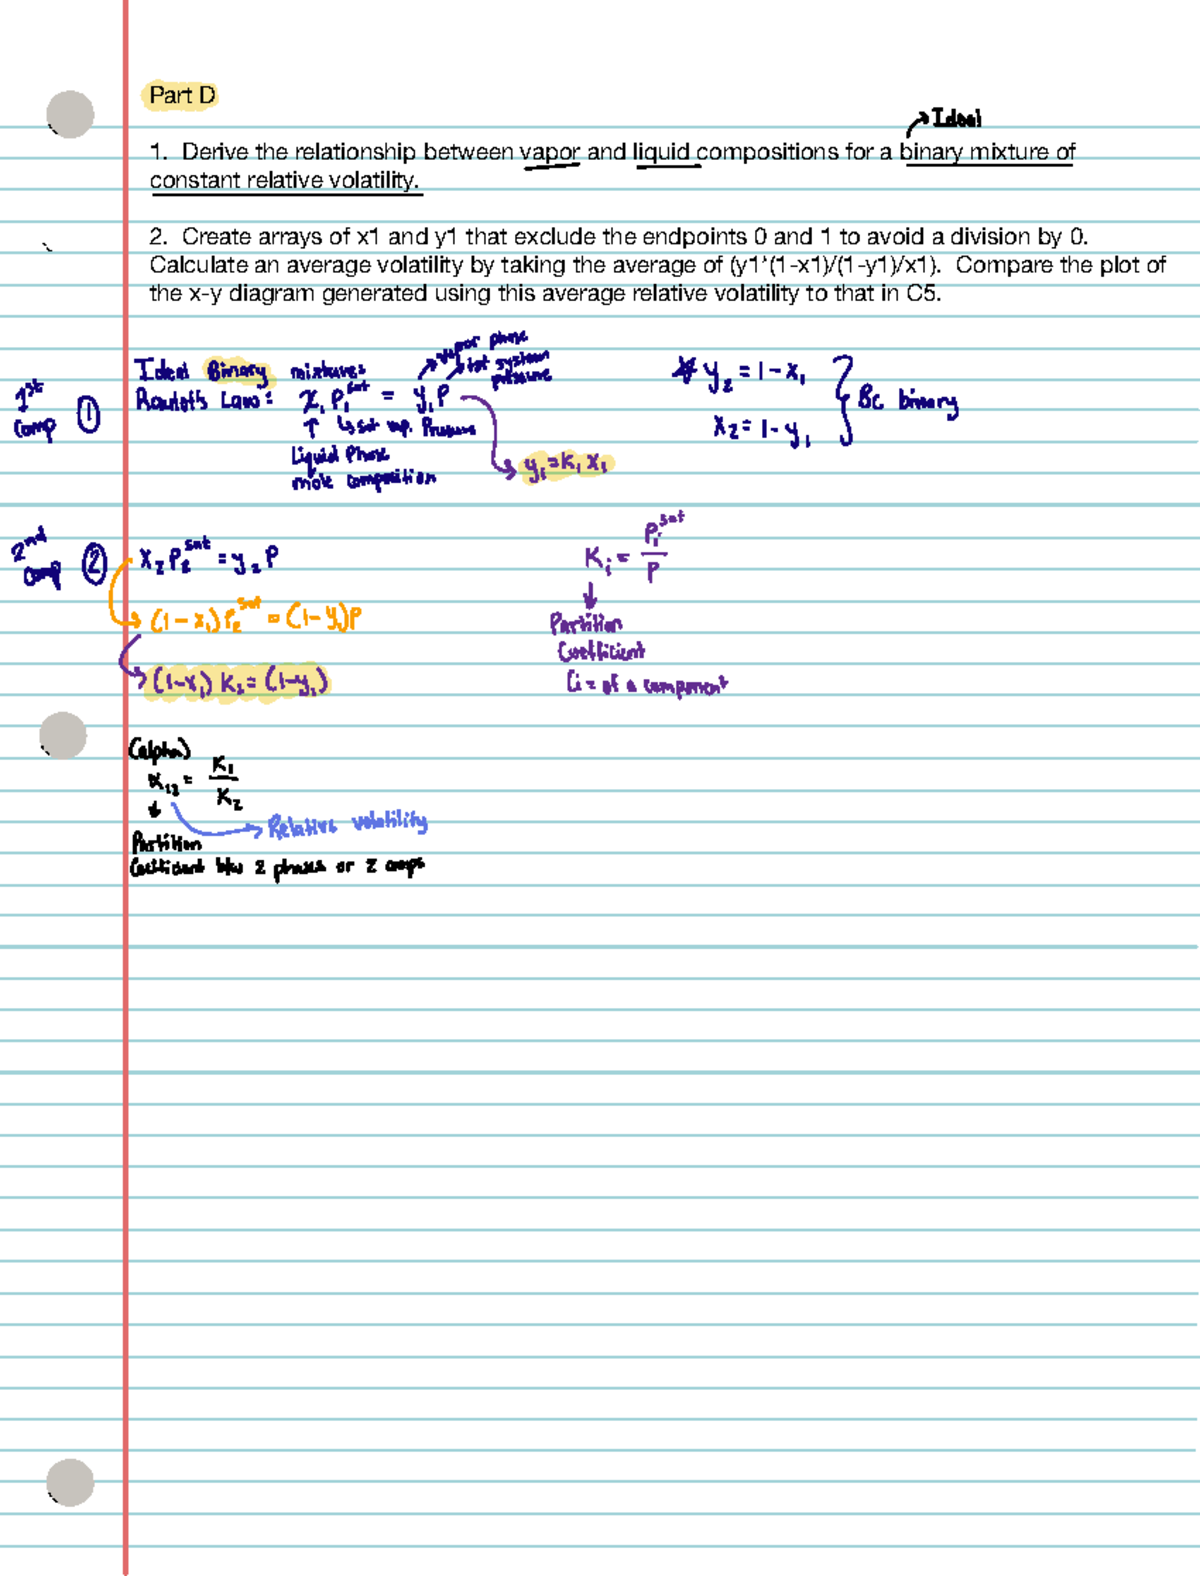 Part D
→ Ideal
1. Derive the relationship between vapor and liquid compositions for a binary mixture of
constant relative volatility.
2. Create arrays of x1 and y1 that exclude the endpoints 0 and 1 to avoid a division by 0.
Calculate an average volatility by taking the average of (y1*(1-x1)/(1-y1)/x1). Compare the plot of
the x-y diagram generated using this average relative volatility to that in C5.
1st comp ①
Ideal Binary mixtures
Raoult's Law: x₁ P₁^sat = y₁P
→ vapor phase
→ tot system pressure
↑ ↳ sat vap. Pressure
Liquid Phase
mole composition
→ y₁ = K₁ x₁
* y₂ = 1 - x₁
x₂ = 1 - y₁
} Bc binary
2nd comp ②
x₂ P₂^sat = y₂ P
→ (1 - x₁) P₂^sat = (1 - y₁)P
→ (1-x₁) K₂ = (1-y₁)
Kᵢ = Pᵢ^sat / P
↓
Partition
Coefficient
(i = of a component
(alpha)
α₁₂ = K₁ / K₂
↓
→ Relative volatility
Partition
Coefficient btw 2 phases or 2 comps